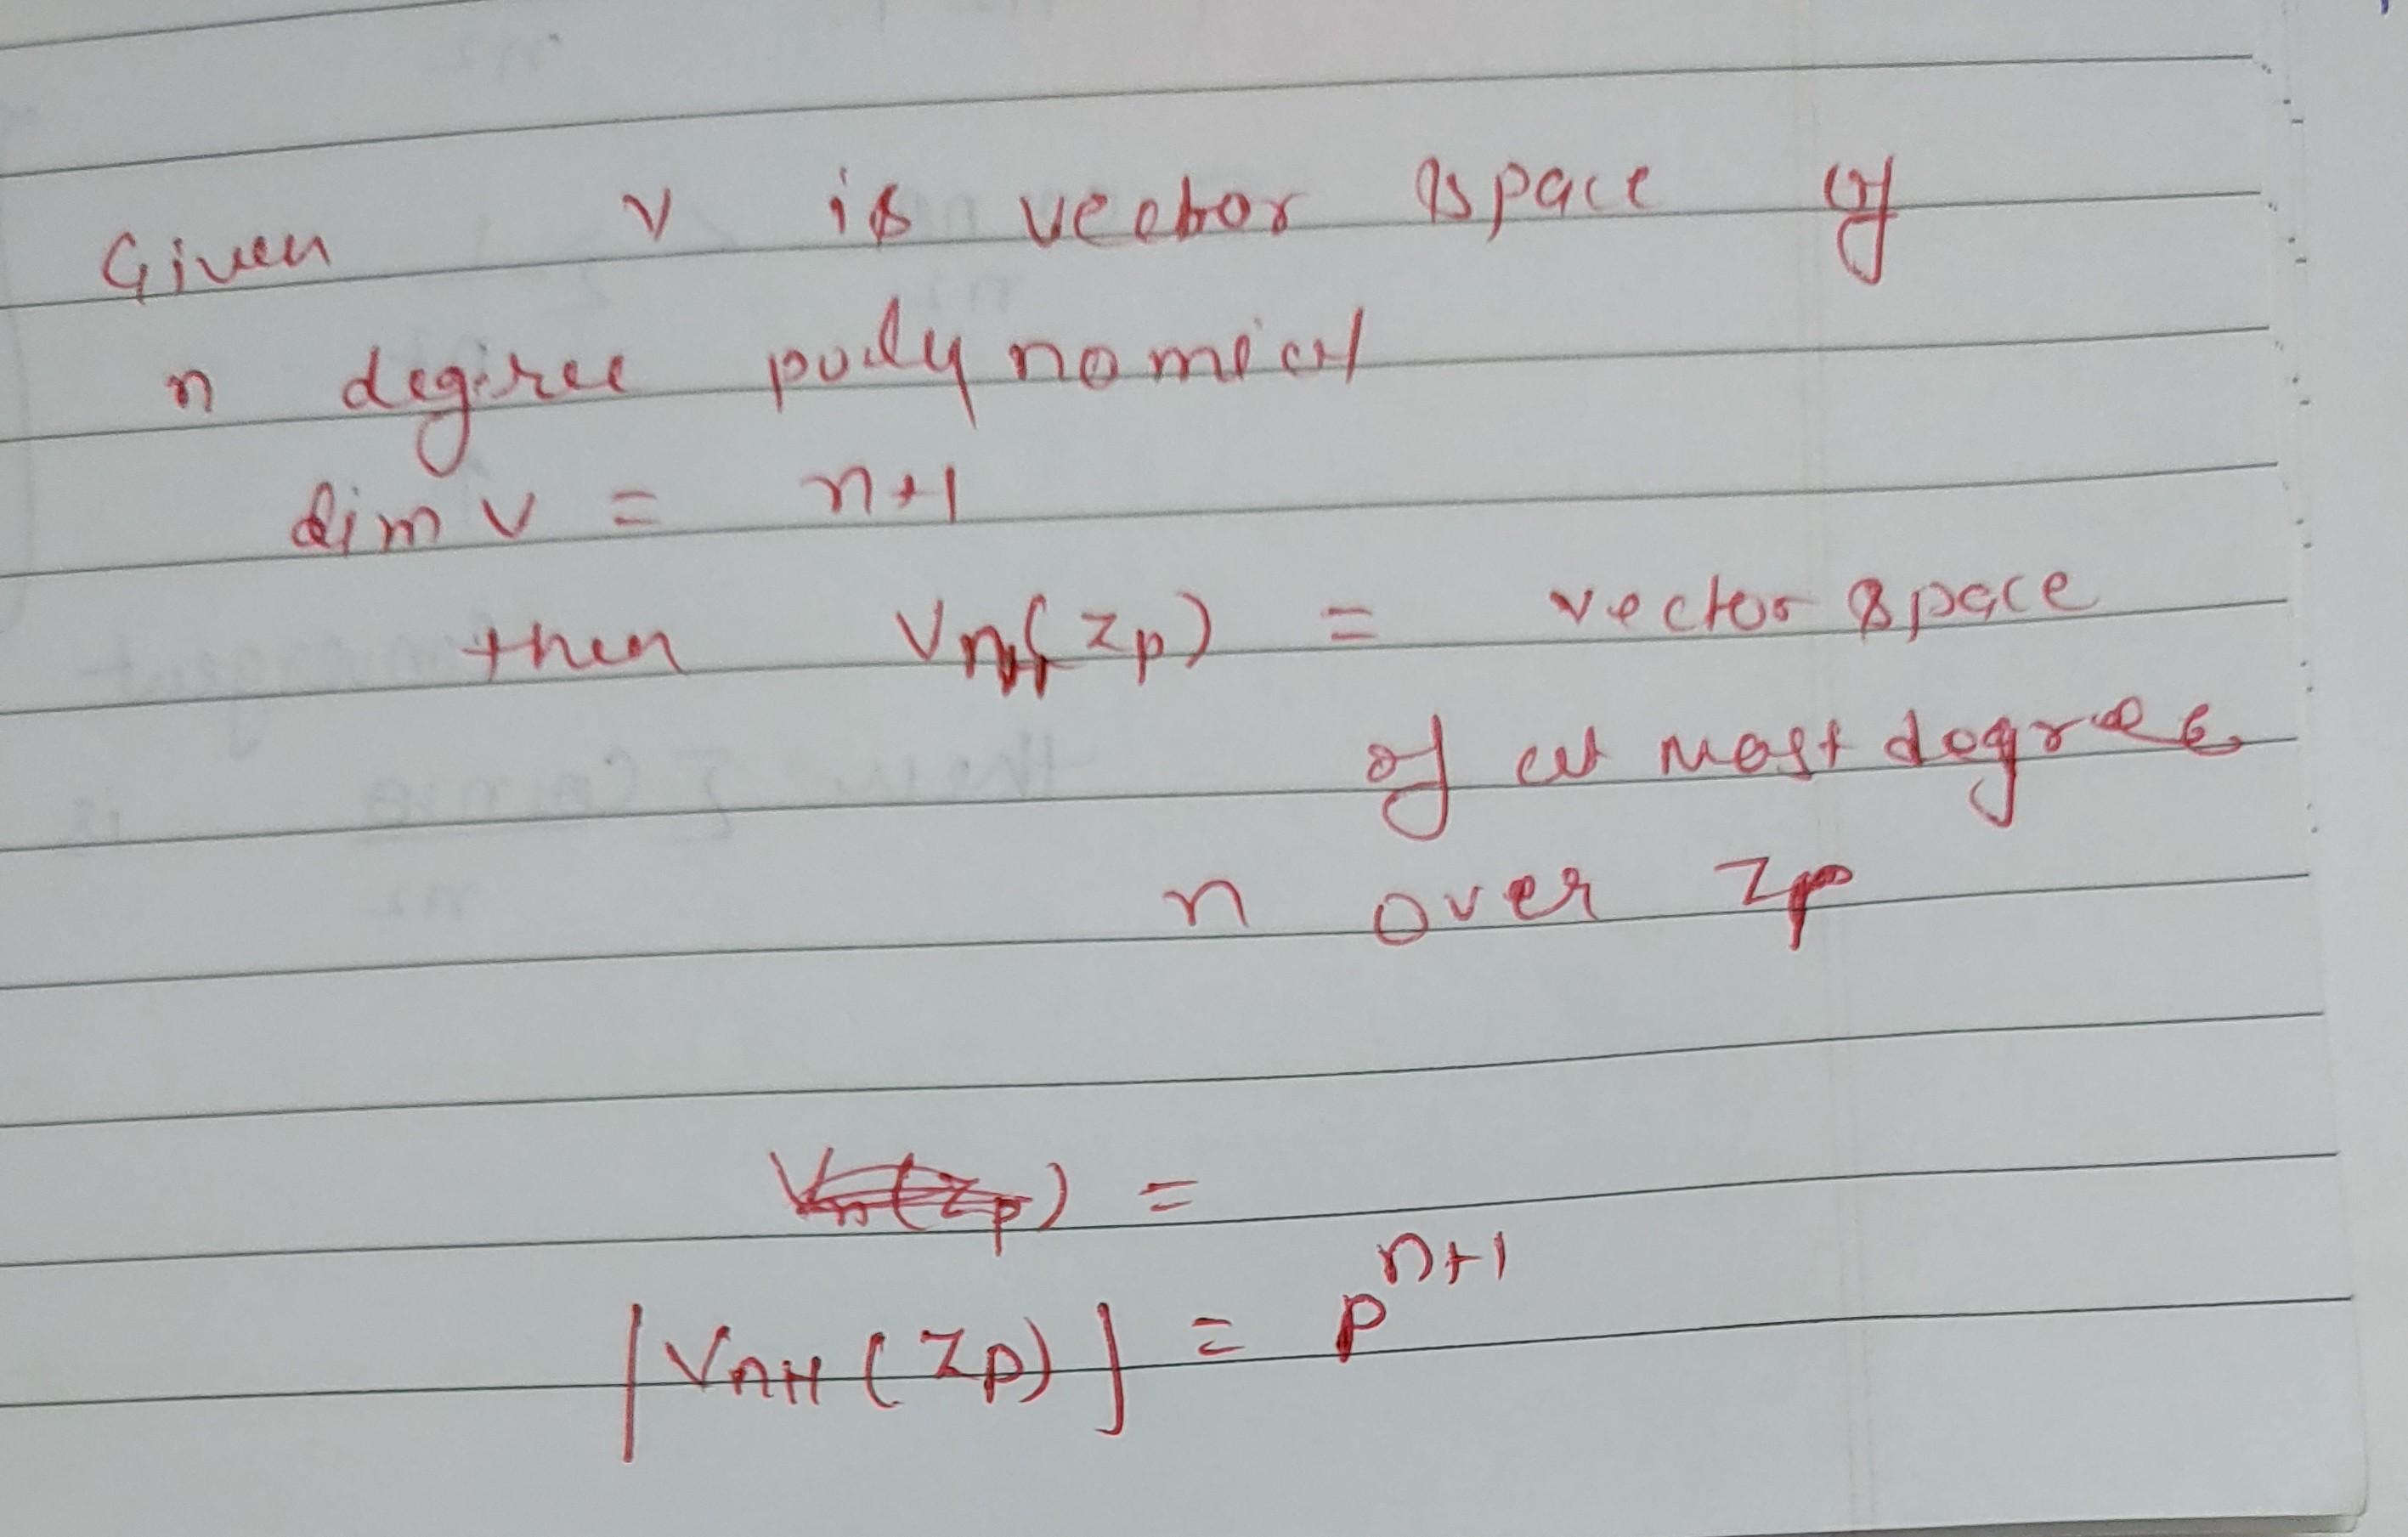 Given v is vector space of
n degree polynomial
dim v = n+1
then Vn+1(Zp) = vector space
of at most degree
n over Zp
Vn(Zp) =
|Vn+1(Zp)| = p^{n+1}